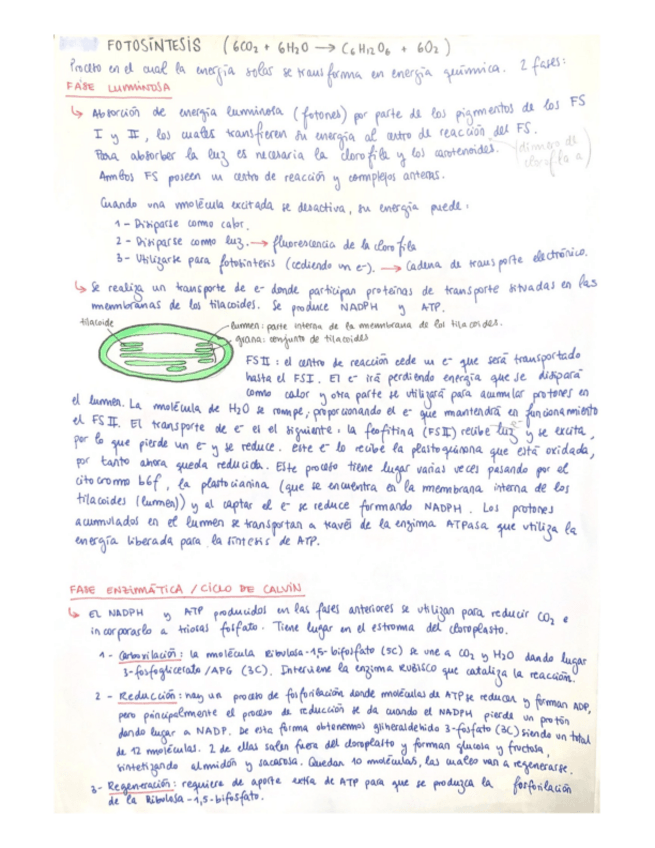 FOTOSÍNTESIS (6CO2 + 6H2O → C6H12O6 + 6O2)
Proceso en el cual la energía solar se transforma en energía química. 2 fases:
FASE LUMINOSA
↳ Absorción de energía luminosa (fotones) por parte de los pigmentos de los FS
I y II, los cuales transfieren su energía al centro de reacción del FS.
Para absorber la luz es necesaria la clorofila y los carotenoides. (dímero de
clorofila a)
Ambos FS poseen un centro de reacción y complejos antena.
Cuando una molécula excitada se desactiva, su energía puede:
1- Disiparse como calor.
2- Disiparse como luz. → fluorescencia de la clorofila
3- Utilizarse para fotosíntesis (cediendo un e-). → Cadena de transporte electrónico.
↳ Se realiza un transporte de e- donde participan proteínas de transporte situadas en las
membranas de los tilacoides. Se produce NADPH y ATP.
tilacoide
lumen: parte interna de la membrana de los tilacoides.
grana: conjunto de tilacoides
FSII: el centro de reacción cede un e- que será transportado
hasta el FSI. El e- irá perdiendo energía que se disipará
como calor y otra parte se utilizará para acumular protones en
el lumen. La molécula de H2O se rompe, proporcionando el e- que mantendrá en funcionamiento
el FSII. El transporte de e- es el siguiente: la feofitina (FSII) recibe luz y se excita,
por lo que pierde un e- y se reduce. Este e- lo recibe la plastoquinona que está oxidada,
por tanto ahora queda reducida. Este proceso tiene lugar varias veces pasando por el
citocromo b6f, la plastocianina (que se encuentra en la membrana interna de los
tilacoides (lumen)) y al captar el e- se reduce formando NADPH. Los protones
acumulados en el lumen se transportan a través de la enzima ATPasa que utiliza la
energía liberada para la síntesis de ATP.
FASE ENZIMÁTICA / CICLO DE CALVIN
↳ EL NADPH y ATP producidos en las fases anteriores se utilizan para reducir CO2 e
incorporarlo a triosas fosfato. Tiene lugar en el estroma del cloroplasto.
1- Carboxilación: la molécula Ribulosa-1,5-bifosfato (5C) se une a CO2 y H2O dando lugar
3-fosfoglicerato/APG (3C). Interviene la enzima RUBISCO que cataliza la reacción.
2- Reducción: hay un proceso de fosforilación donde moléculas de ATP se reducen y forman ADP,
pero principalmente el proceso de reducción se da cuando el NADPH pierde un protón
dando lugar a NADP. De esta forma obtenemos gliceraldehido 3-fosfato (3C) siendo un total
de 12 moléculas. 2 de ellas salen fuera del cloroplasto y forman glucosa y fructosa,
sintetizando almidón y sacarosa. Quedan 10 moléculas, las cuales van a regenerarse.
3- Regeneración: requiere de aporte extra de ATP para que se produzca la fosforilación
de la Ribulosa-1,5-bifosfato.